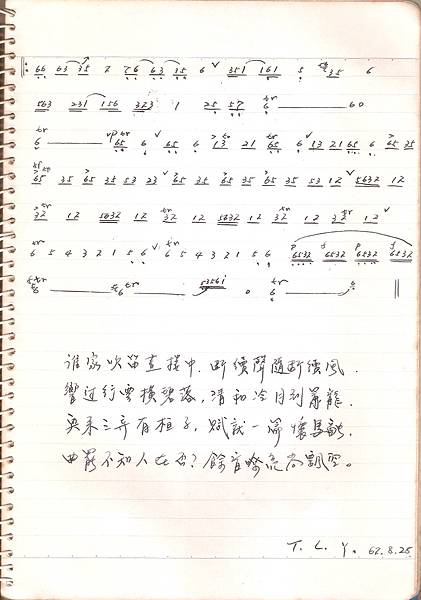 66 63 35 2 76 63 35 6 351 161 5 35 6
563 231 156 323 1 25 57 tr 6 — 60
tr 6 — tr 65 6 65 6 13 tr 21 tr 65 6 13 21 65 6 65 35
tr 65 35 65 35 53 23 65 35 65 35 65 35 53 12 5632 12
tr 32 12 12 5632 12 tr 32 12 5632 12 tr 32 12 32 tr 12
tr 6 5 4 3 2 1 5 6 tr 6 5 4 3 2 1 5 6 p 6532 f 6532 p 6532 f 6532
tr 6 — 6 tr — 53561 0 tr 6 — 6
誰家吹笛畫樓中.断續聲隨断續風.
響遏行雲橫碧落,清和冷月到簾櫳.
興來三弄有桓子,賦就一篇懷馬融.
曲罷不知人在否?餘音嘹亮尚飄空。
T. L. Y. 62.8.25